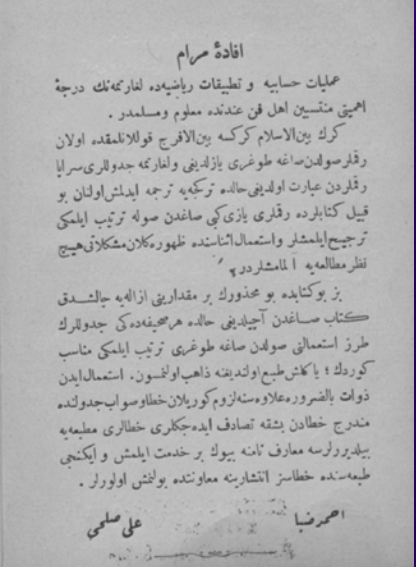 افادهٔ مرام
عملیات حسابیه و تطبیقات ریاضیه‌ده لغارتمه‌نك درجهٔ
اهمیتی منتسبین اهل فن عندنده معلوم و مسلمدر .
كرك بین‌الاسلام كركسه بین‌الافرنج قوللانلمقده اولان
رقملر صولدن صاغه طوغری یازلدیغی ولغارتمه جدوللری سراپا
رقملردن عبارت اولدیغی حالده تركجه‌یه ترجمه ایدلمش اولنان بو
قبیل كتابلرده رقملری یازی كبی صاغدن صوله ترتیب ایلمكی
ترجیح ایلمشلر و استعمال اثناسنده ظهوره كلان مشكلاتی هیچ
نظر مطالعه‌یه آلمامشلردر .
بز بوكتابده بو محذورك بر مقدارینی ازاله‌یه چالشدق
كتاب صاغدن آچیلدیغی حالده هر صحیفه‌ده‌كی جدوللرك
طرز استعمالنی صولدن صاغه طوغری ترتیب ایلمكی مناسب
كوردك ؛ یاكلش طبع اولندیغنه ذاهب اولنمسون . استعمال ایدن
ذوات بالضروره علاوه‌سنه لزوم كوریلان خطا و صواب جدولنده
مندرج خطادن بشقه تصادف ایده‌جكلری خطالری مطبعه‌یه
بیلدیررلرسه معارف نامنه بیوك بر خدمت ایلمش و ایكنجی
طبعه‌سنده خطاسز انتشارینه معاونتده بولنمش اولورلر .
احمد ضیا علی صلحی